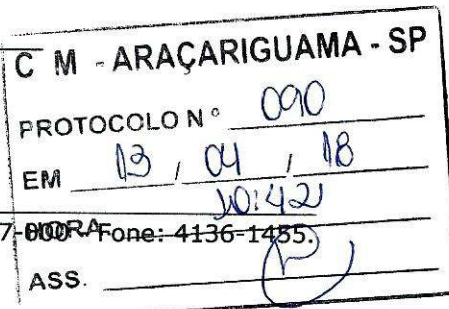 C M - ARAÇARIGUAMA - SP
PROTOCOLO Nº 090
EM 13 / 04 / 18
10:42
HORA
Fone: 4136-1455.
ASS.